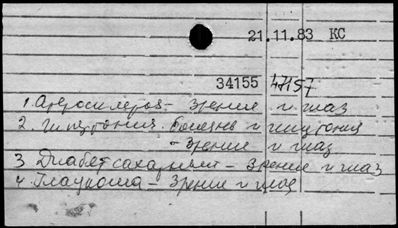 21.11.83 КС
34155 47157
1. Атеросклероз - Зрение и глаз
2. Гипертония. Болезнь гипертония
- Зрение и глаз
3 Диабет сахарный - Зрение и глаз
4. Глаукома - Зрение и глаз